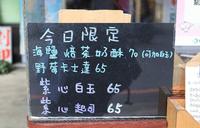 今日限定
海鹽焙茶奶酥 70 (可加白玉)
野莓卡士達 65
紫心白玉 65
紫心起司 65